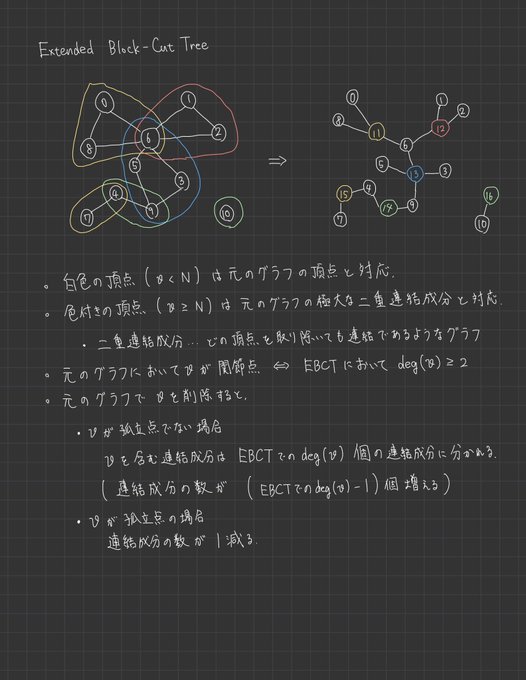 Extended Block-Cut Tree
0
1
6
2
8
5
3
4
7
9
10
⇒
0
1
8
2
11
12
6
5
13
3
15
4
16
14
9
7
10
。白色の頂点 (v < N) は元のグラフの頂点と対応.
。色付きの頂点 (v ≥ N) は元のグラフの極大な二重連結成分と対応.
・二重連結成分… どの頂点を取り除いても連結であるようなグラフ
。元のグラフにおいて v が関節点 ⇔ EBCT において deg(v) ≥ 2
。元のグラフで v を削除すると,
・v が孤立点でない場合
v を含む連結成分は EBCT での deg(v) 個の連結成分に分かれる.
( 連結成分の数が ( EBCT での deg(v) - 1 ) 個増える )
・v が孤立点の場合
連結成分の数が 1 減る.